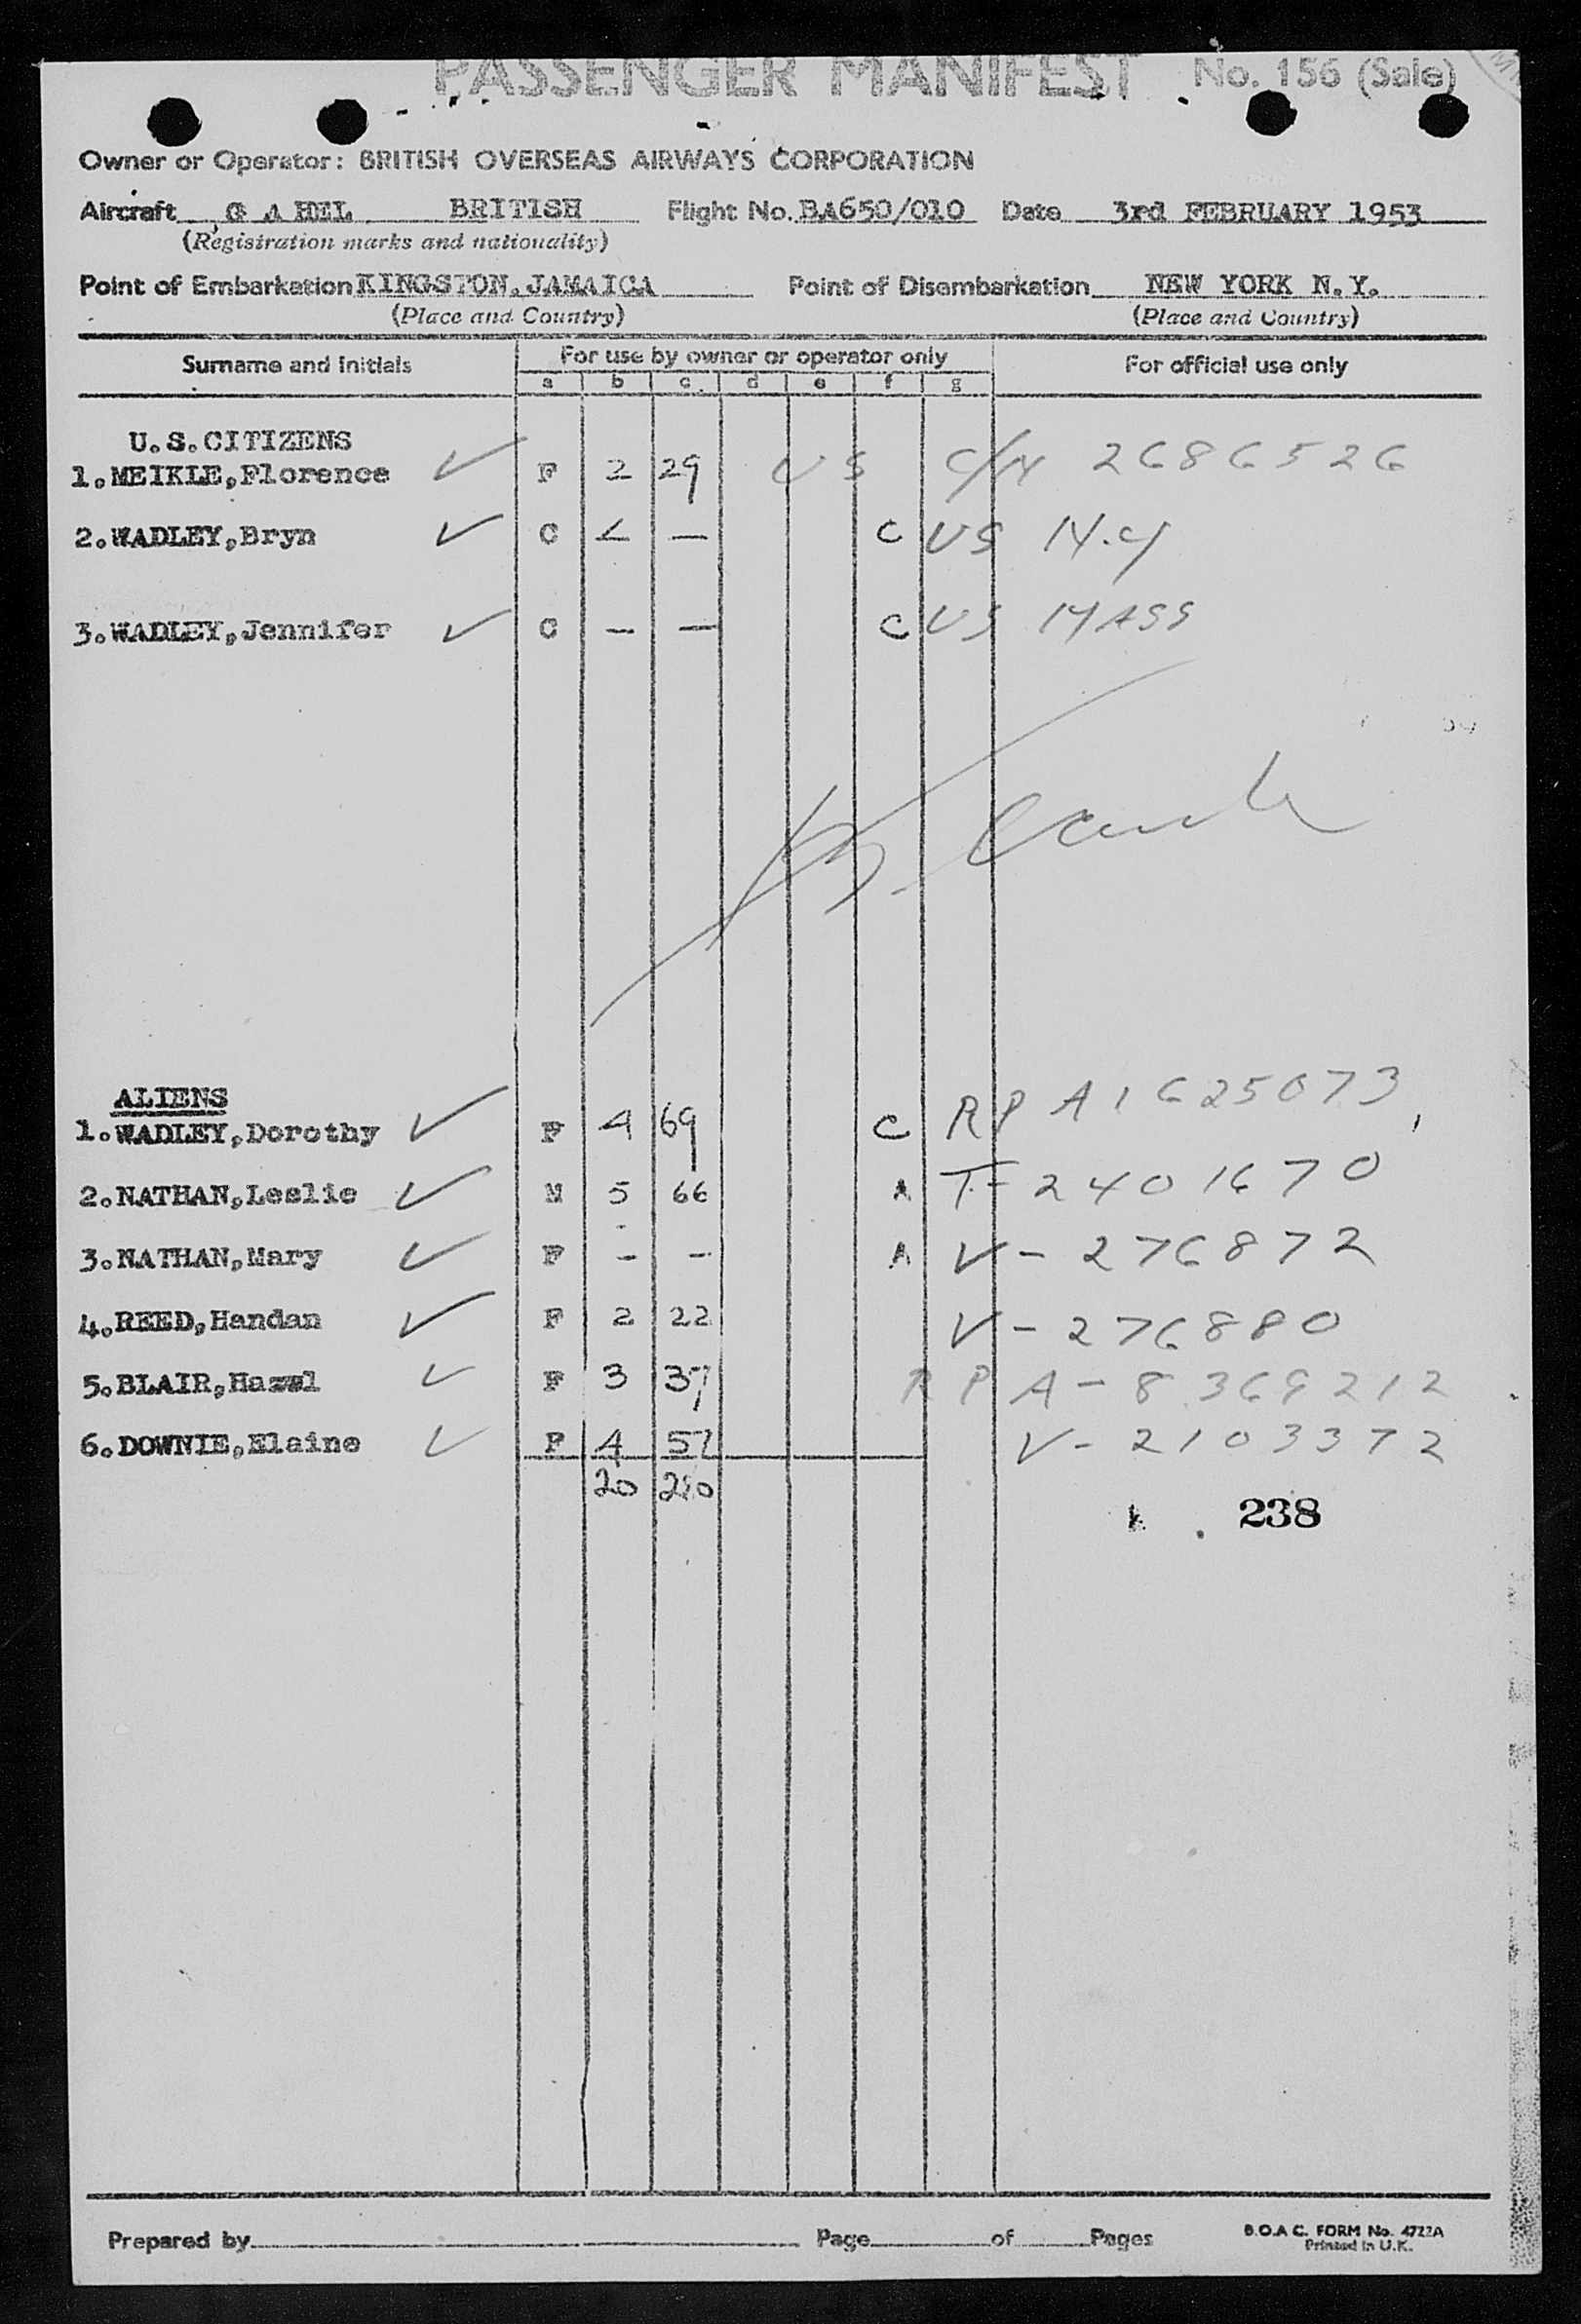 PASSENGER MANIFEST No. 156 (Sale)
Owner or Operator: BRITISH OVERSEAS AIRWAYS CORPORATION
Aircraft G A HEL BRITISH Flight No. BA650/010 Date 3rd FEBRUARY 1953
(Registration marks and nationality)
Point of Embarkation KINGSTON, JAMAICA Point of Disembarkation NEW YORK N.Y.
(Place and Country) (Place and Country)
Surname and Initials For use by owner or operator only For official use only
a b c d e f g
U.S.CITIZENS
1.MEIKLE,Florence ✓ F 2 29 US C/N 2686526
2.WADLEY,Bryn ✓ C — C US N.Y
3.WADLEY,Jennifer ✓ C — — C US MASS
ALIENS
1.WADLEY,Dorothy ✓ F 4 69 C R P A1625073
2.NATHAN,Leslie ✓ M 5 66 A T-2401670
3.NATHAN,Mary ✓ F - - A V-276872
4.REED,Handan ✓ F 2 22 V-276880
5.BLAIR,Hazel ✓ F 3 37 R P A-8369212
6.DOWNIE,Elaine ✓ F 4 57 V-2103372
20 280
238
Prepared by Page of Pages B.O.A C. FORM No. 4722A
Printed in U.K.